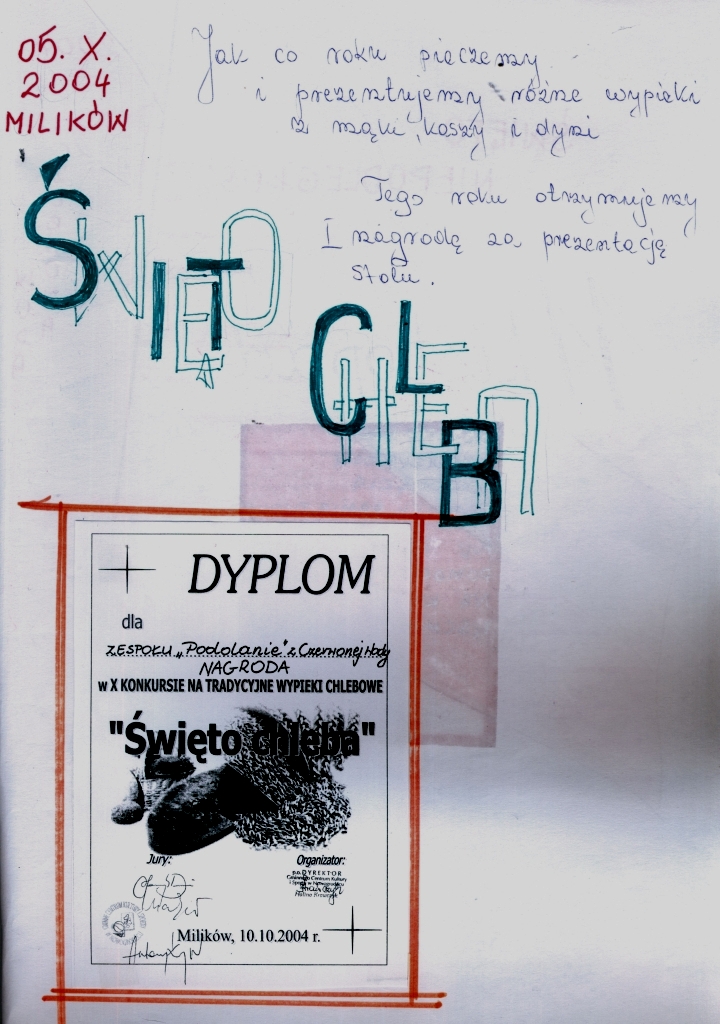 05. X.
2004
MILIKÓW
Jak co roku pieczemy
i prezentujemy różne wypieki
z mąki, kaszy i dyni
Tego roku otrzymujemy
I nagrodę za prezentację
stołu.
ŚWIĘTO
CHLEBA
DYPLOM
dla
ZESPOŁU „Podolanie" z Czerwonej Wody
NAGRODA
w X KONKURSIE NA TRADYCYJNE WYPIEKI CHLEBOWE
"Święto chleba"
Jury:
Organizator:
p.o. DYREKTOR
Gminnego Centrum Kultury
Milików, 10.10.2004 r.